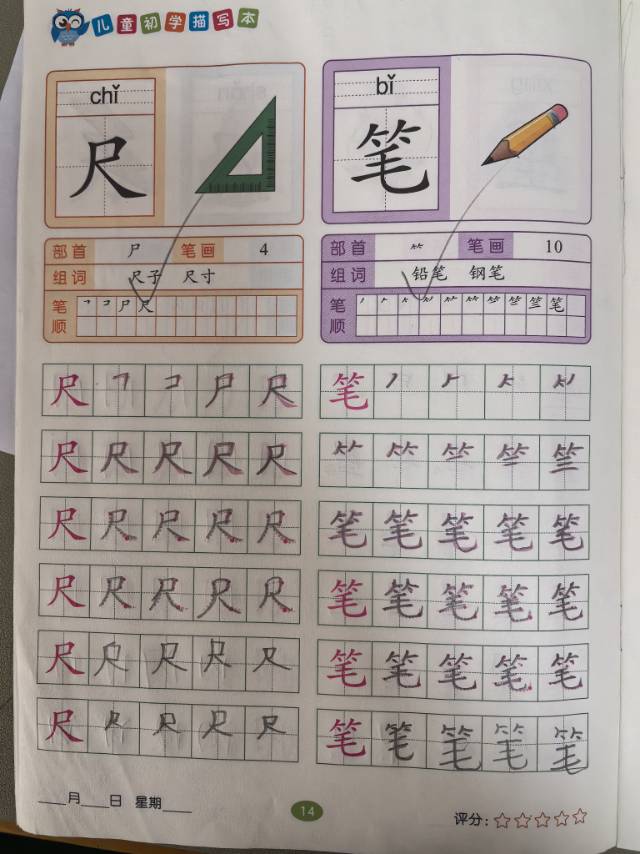 儿童初学描写本
chǐ
尺
部首 尸 笔画 4
组词 尺子 尺寸
笔顺 ㇕ コ 尸 尺
bǐ
笔
部首 ⺮ 笔画 10
组词 铅笔 钢笔
笔顺 笔
尺 ㇕ コ 尸 尺
尺 尺 尺 尺 尺
尺 尺 尺 尺 尺
尺 尺 尺 尺 尺
尺 尺 尺 尺 尺
尺 尺 尺 尺 尺
笔
笔 笔 笔 笔 笔
笔 笔 笔 笔 笔
笔 笔 笔 笔 笔
笔 笔 笔 笔 笔
____月____日 星期____
14
评分：☆☆☆☆☆